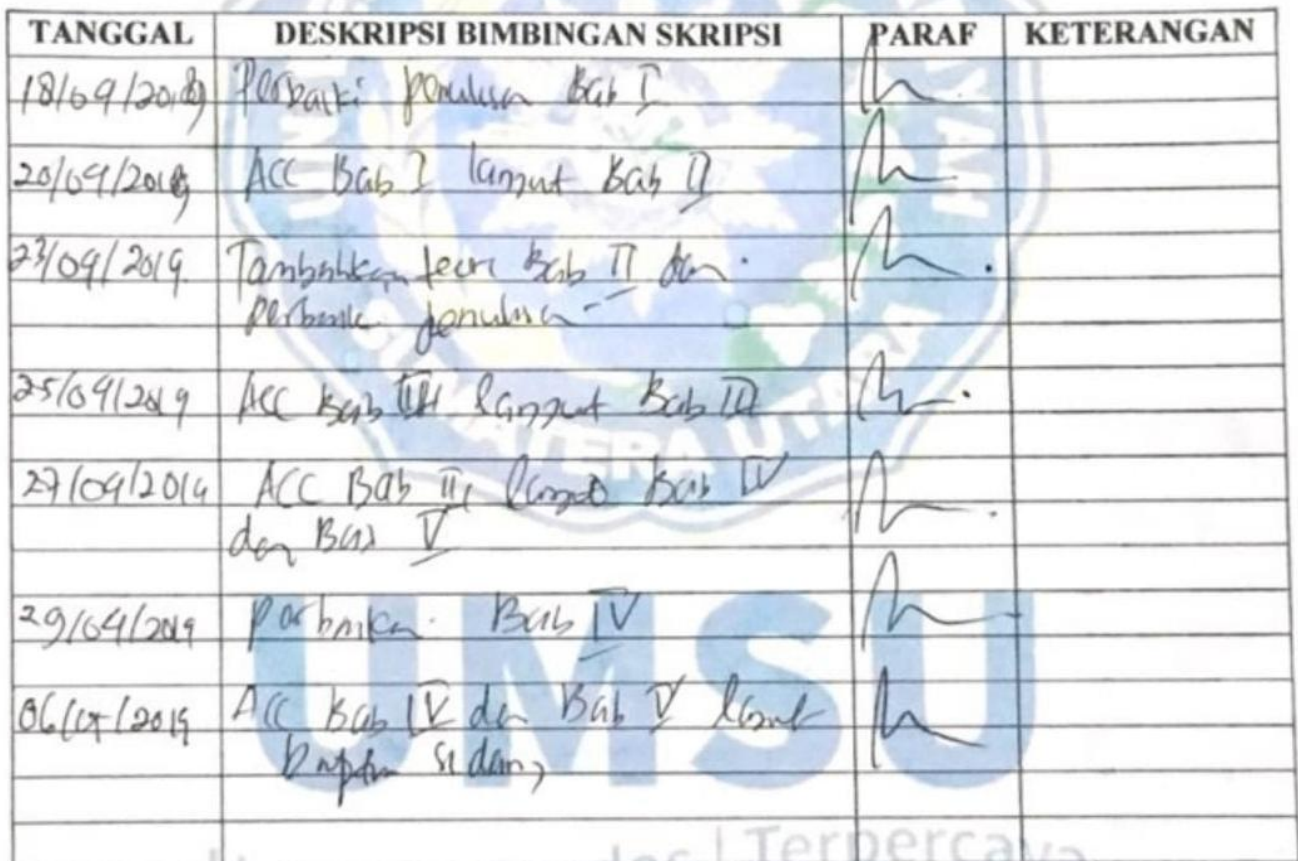 TANGGAL DESKRIPSI BIMBINGAN SKRIPSI PARAF KETERANGAN
18/09/2019 Perbaiki penulisan Bab I
20/09/2019 ACC Bab I lanjut Bab II
23/09/2019. Tambahkan teori Bab II dan
Perbaiki penulisan
25/09/2019 ACC Bab lanjut Bab III
27/09/2019 ACC Bab III lanjut Bab IV
dan Bab V
29/09/2019 Perbaikan Bab IV
2019 ACC Bab IV dan Bab V lanjut
sidang
SUMATERA UTARA
UMSU
Terpercaya